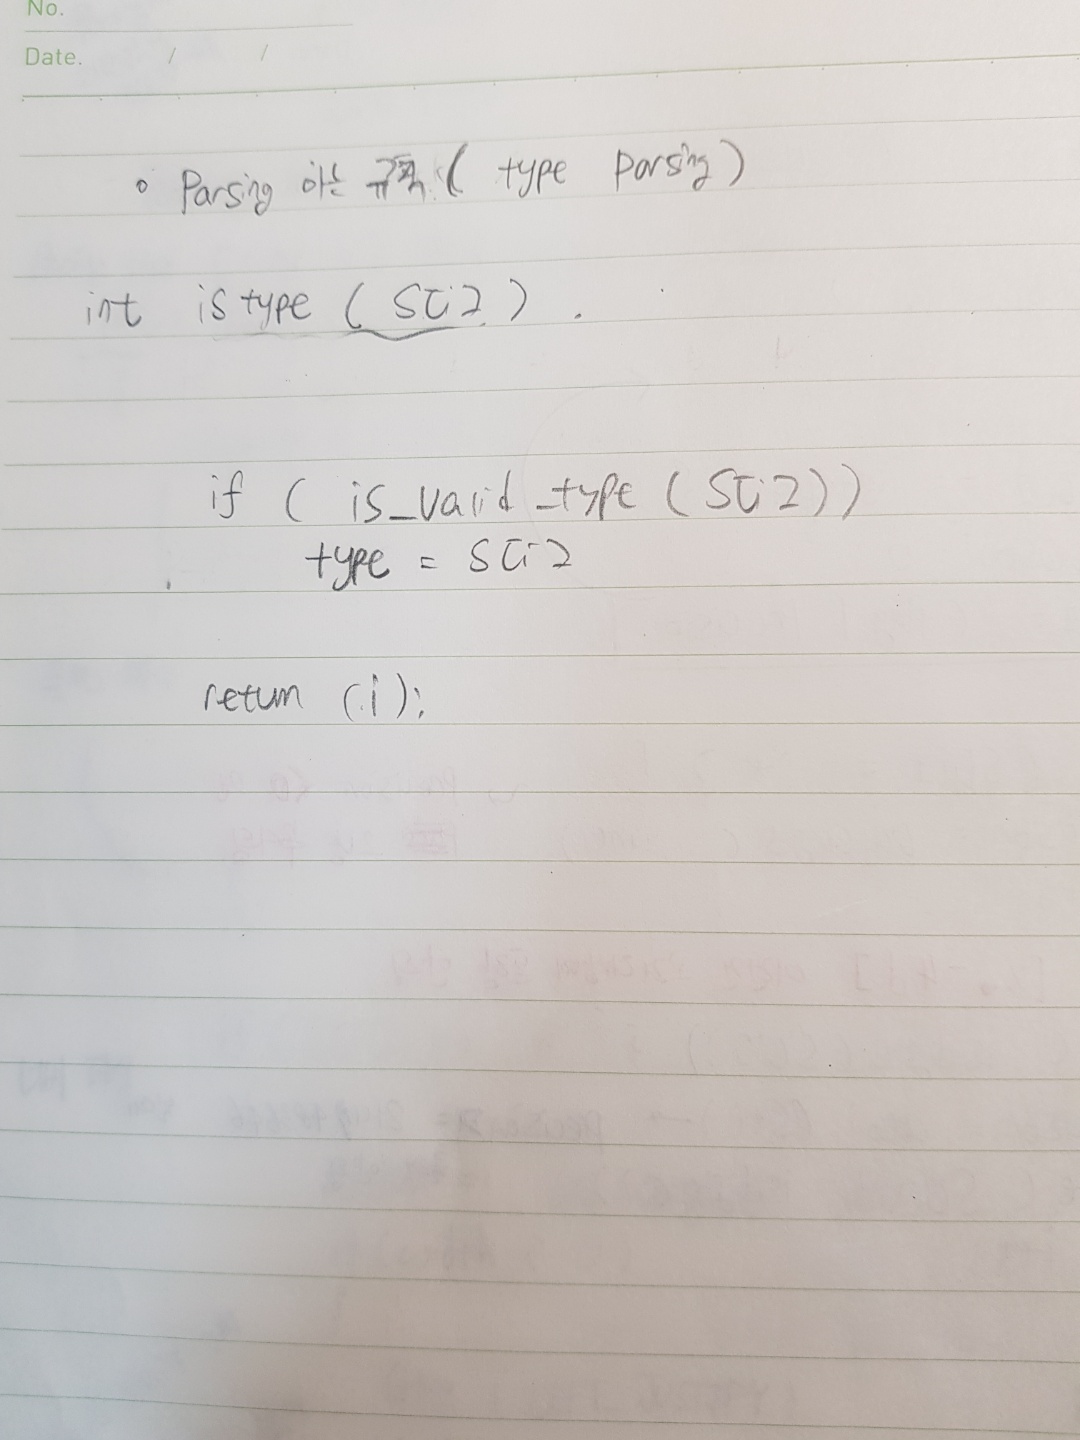 No.
Date. / /
◦ Parsing 하는 규칙 ( type parsing)
int is type ( S[i] ) .
if ( is_valid_type ( S[i] ))
type = S[i]
return (i);